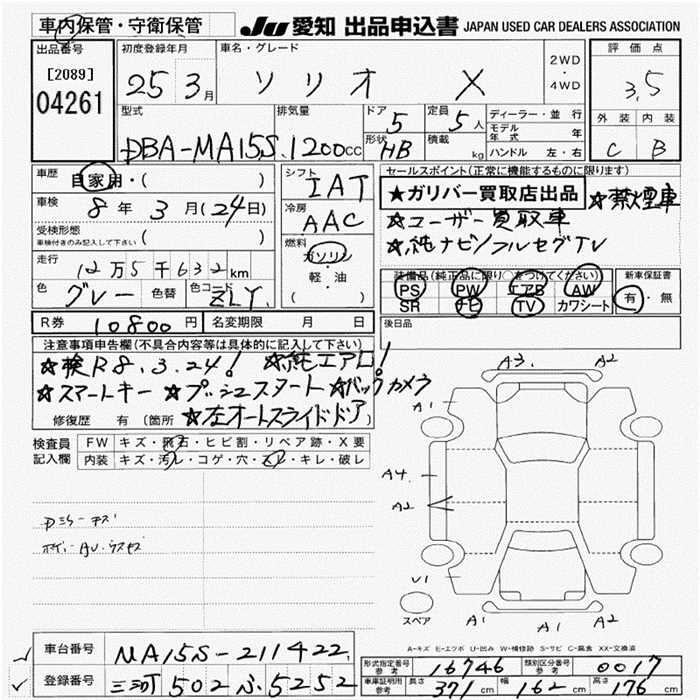 車内保管・守衛保管 JU 愛知 出品申込書 JAPAN USED CAR DEALERS ASSOCIATION
出品番号 初度登録年月 車名・グレード 2WD・4WD 評価点
[2089] 04261 25 3月 ソリオ X 3.5
型式 排気量 ドア 5 定員 5人 ディーラー・並行 外装 内装
DBA-MA15S 1200cc 形状 HB 積載 kg モデル年式 年 C B
ハンドル 左・右
車歴 自家用・( ) シフト IAT セールスポイント(正常に機能するものに限ります)
車検 8年3月(24日) 冷房 AAC ★ガリバー買取店出品 ☆禁煙車
受検形態 ( ) ☆ユーザー買取車
車検付きのみ記入して下さい 燃料 ガソリン・軽・油 ( ) ☆純ナビ/フルセグTV
走行 12万5千632km 装備品(純正品に限り○をつけてください) 新車保証書
色 グレー 色替 色コード ZLY PS PW エアB AW 有・無
SR ナビ TV カワシート
R券 10800円 名変期限 月 日 後日品
注意事項申告欄(不具合内容等は具体的に記入して下さい)
☆検R8.3.24! ☆純エアロ!
☆スマートキー ☆プッシュスタート ☆バックカメラ
修復歴 有(箇所 ☆左オートスライドドア )
検査員記入欄 FW キズ・飛石・ヒビ割・リペア跡・X要
内装 キズ・汚レ・コゲ・穴・スレ・キレ・破レ
A3 A2
A1
A4
A2
U1
スペア A1 A1 A2
A-キズ E-エクボ U-凹み W-補修跡 S-サビ C-腐食 XX-交換済
車台番号 MA15S-211422 形式指定番号 参考 16746 類別区分番号 参考 0017
登録番号 三河 502 ふ 5252 車庫証明用 参考 長さ 371cm 幅 162cm 高さ 176cm